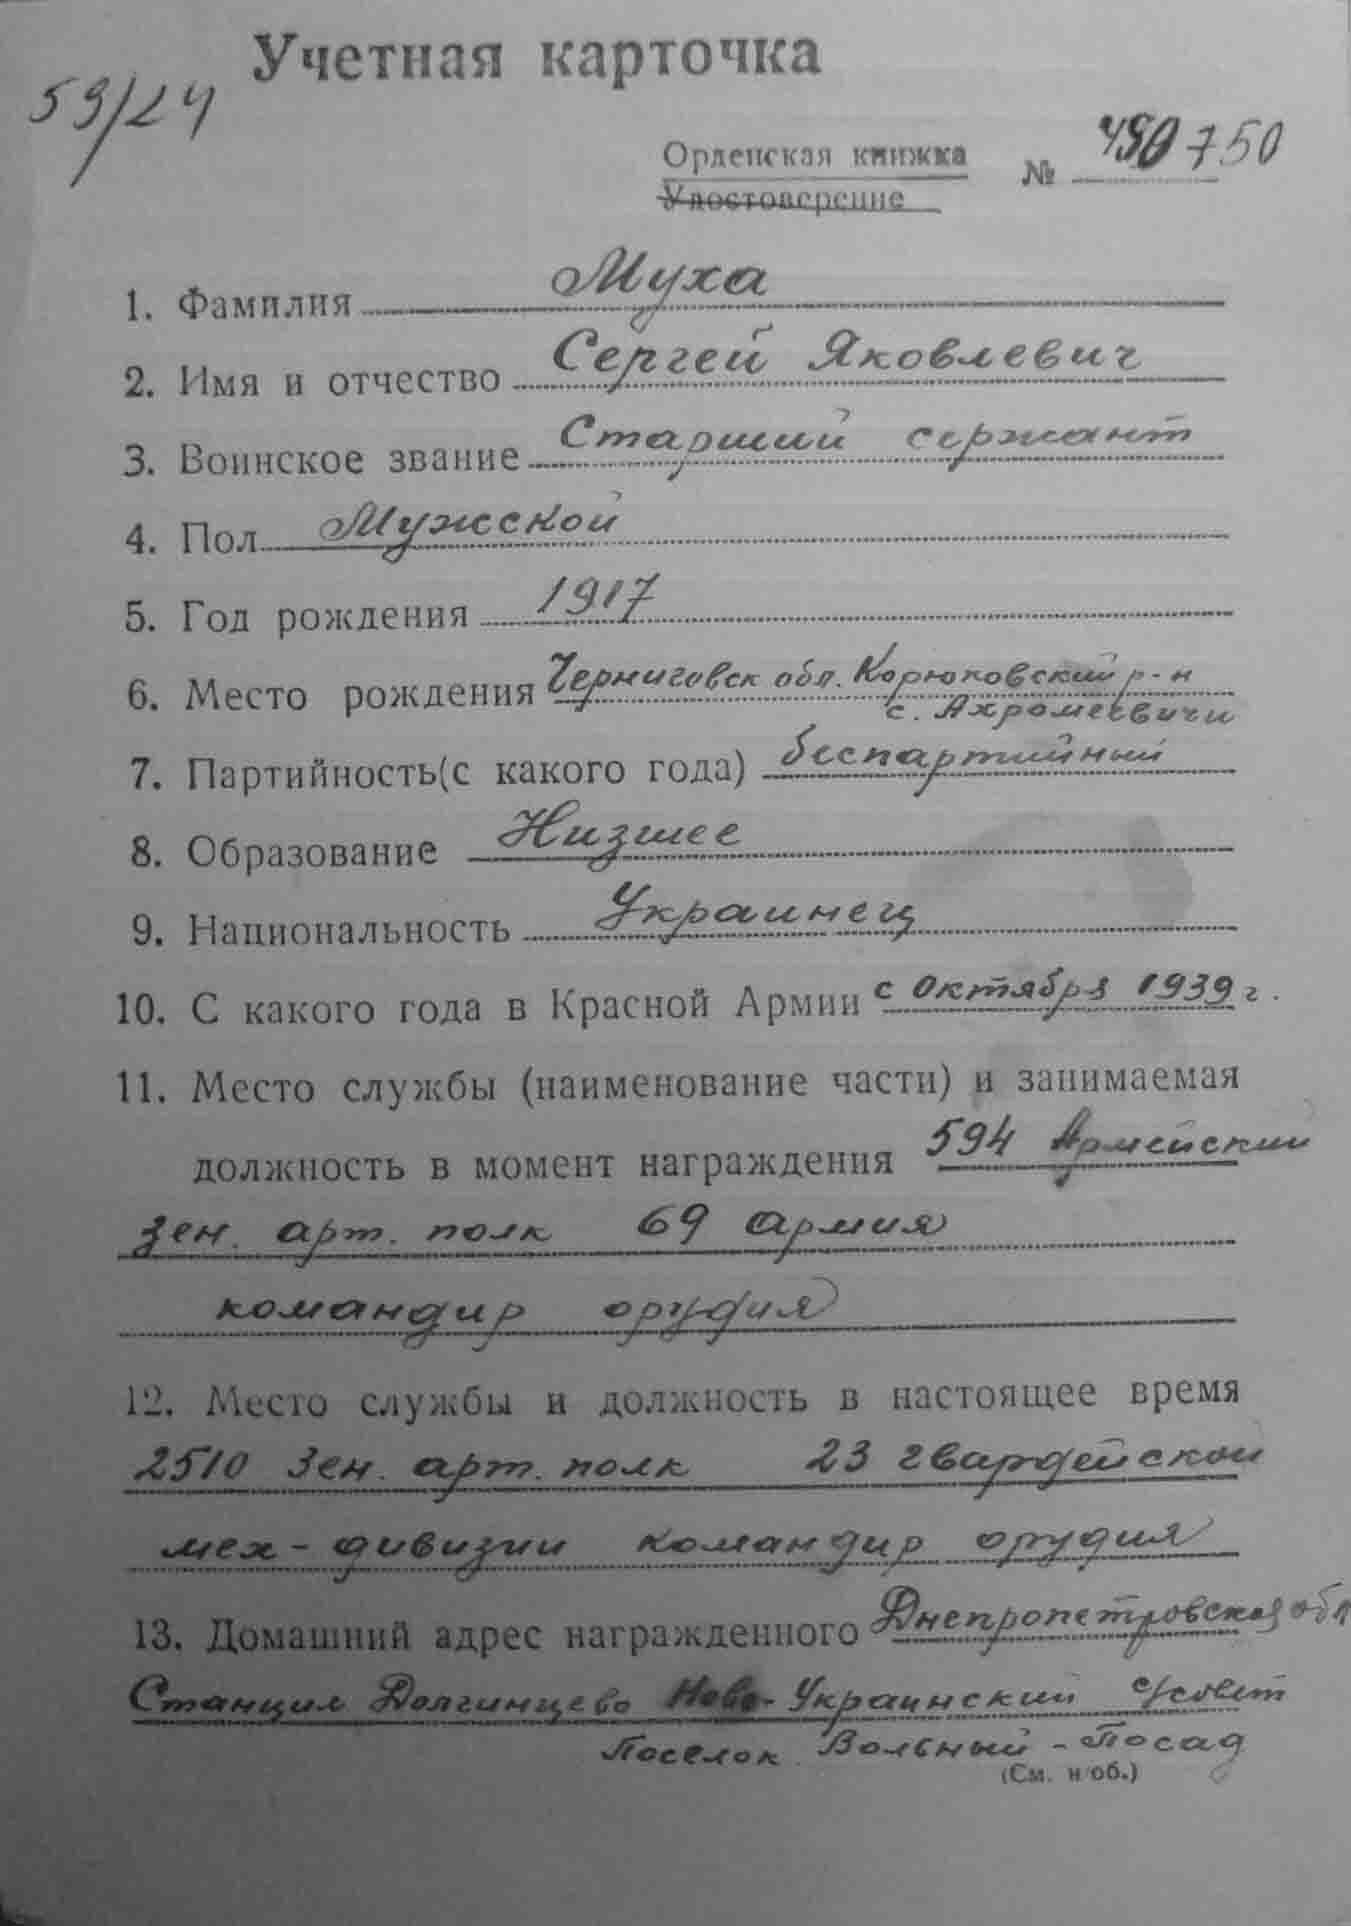 Учетная карточка
59/24
Орденская книжка № 490750
Удостоверение
1. Фамилия Муха
2. Имя и отчество Сергей Яковлевич
3. Воинское звание Старший сержант
4. Пол Мужской
5. Год рождения 1917
6. Место рождения Черниговск обл. Корюковский р-н
с. Ахромеевичи
7. Партийность(с какого года) беспартийный
8. Образование Низшее
9. Национальность Украинец
10. С какого года в Красной Армии с Октября 1939 г.
11. Место службы (наименование части) и занимаемая
должность в момент награждения 594 Армейский
зен. арт. полк 69 армия
командир орудия
12. Место службы и должность в настоящее время
2510 Зен. арт. полк 23 гвардейской
мех-дивизии командир орудия
13. Домашний адрес награжденного Днепропетровская обл
Станция Долгинцево Ново-Украинский с/совет
Поселок Вольный-Посад
(См. н/об.)